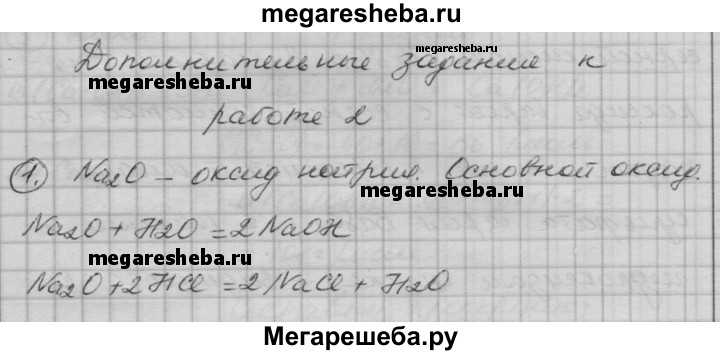 megaresheba.ru
Дополнительные задание к
megaresheba.ru
megaresheba.ru
работе 2
1. Na2O – оксид натрия. Основной оксид.
megaresheba.ru
Na2O + H2O = 2NaOH
megaresheba.ru
Na2O + 2HCl = 2NaCl + H2O
Мегарешеба.ру